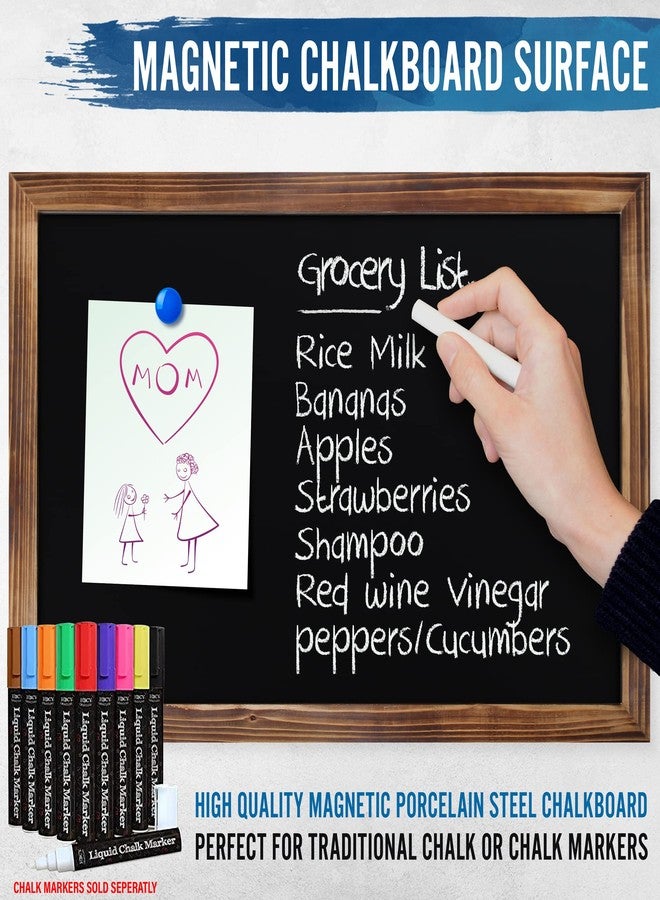 MAGNETIC CHALKBOARD SURFACE
Grocery List
MOM
Rice Milk
Bananas
Apples
Strawberries
Shampoo
Red wine Vinegar
peppers/Cucumbers
Liquid Chalk Marker
Liquid Chalk Marker
Liquid Chalk Marker
Liquid Chalk Marker
Liquid Chalk Marker
Liquid Chalk Marker
Liquid Chalk Marker
Liquid Chalk Marker
Liquid Chalk Marker
Liquid Chalk Marker
HIGH QUALITY MAGNETIC PORCELAIN STEEL CHALKBOARD
PERFECT FOR TRADITIONAL CHALK OR CHALK MARKERS
CHALK MARKERS SOLD SEPERATLY